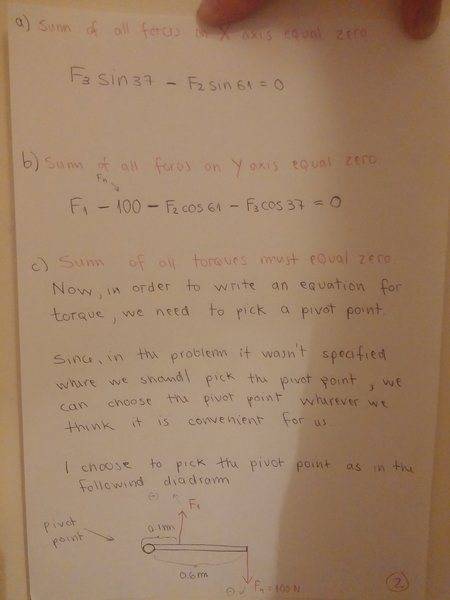 a) Sum of all forces on X axis equal zero
F3 sin37 - F2 sin61 = 0
b) Sum of all forces on Y axis equal zero
F4
F1 - 100 - F2 cos61 - F3 cos37 = 0
c) Sum of all torques must equal zero.
Now, in order to write an equation for
torque, we need to pick a pivot point.
Since, in the problem it wasn't specified
where we should pick the pivot point, we
can choose the pivot point wherever we
think it is convenient for us
I choose to pick the pivot point as in the
followind diadram
F1
pivot
point
0.1m
0.6m
F4 = 100N
2